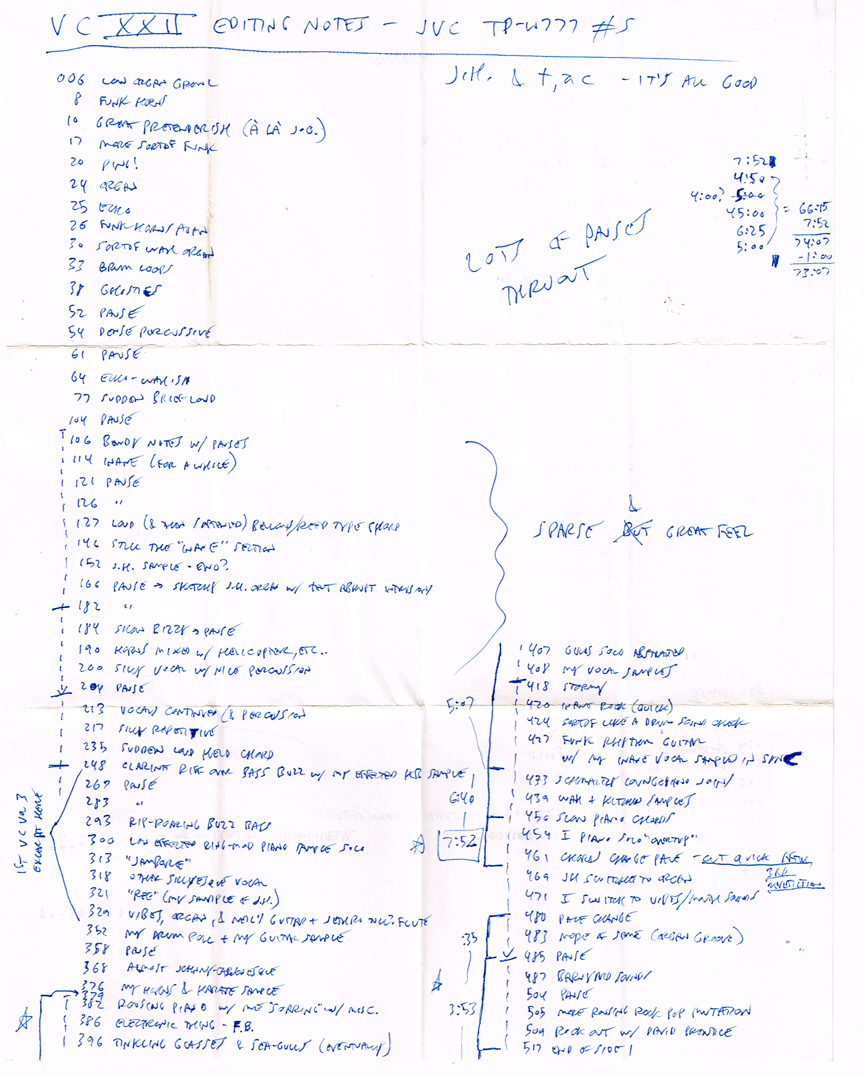 VC XXII EDITING NOTES - JVC TD-W777 #5
J.H. & t, a c - IT'S ALL GOOD
006 LOW ORGAN GROWL
8 FUNK HORNS
10 GREAT PRETENDERISH (À LÀ J.O.B.)
17 MORE SORTOF FUNK
20 PING!
24 ORGAN
25 ECHO
26 FUNK-HORNS AGAIN
30 SORTOF WAH ORGAN
33 DRUM LOOPS
38 GHOSTIES
52 PAUSE
54 DENSE PERCUSSIVE
61 PAUSE
64 ECHO-WAH-ISH
77 SUDDEN BRIEF LOUD
104 PAUSE
106 BENDY NOTES W/ PAUSES
114 INANE (FOR A WHILE)
121 PAUSE
126 "
127 LOUD (& THEN SOFTENED) BELLOWS/REED TYPE CHORD
146 STILL THE "INANE" SECTION
152 J.H. SAMPLE - ENO?
166 PAUSE → SKETCHY J.H. ORGAN W/ THAT ABRUPT
182 "
184 SLOW BIZZY → PAUSE
190 HORNS MIXED W/ HELICOPTER, ETC..
200 SILLY VOCAL W/ NICE PERCUSSION
204 PAUSE
213 VOCALS CONTINUED (& PERCUSSION
217 SILLY REPETITIVE
235 SUDDEN LOUD HELD CHORD
248 CLARINET RIFF OVER BASS BUZZ W/ MY EFFECTED SAMPLE
267 PAUSE
283 "
293 RIP-ROARING BUZZ BASS
300 LOW EFFECTED RING-MOD PIANO SAMPLE SOLO
313 "JAMBALE"
318 OTHER SILLYESQUE VOCAL
321 "REE" (MY SAMPLE OF J.H.)
329 VIBES, ORGAN, & NOISY GUITAR + JETHRO TULL FLUTE
352 MY DRUM ROLL + MY GUITAR SAMPLE
358 PAUSE
368 ALMOST
376 MY HORNS & KARATE SAMPLE
379
382 ROUSING PIANO W/ ME "SORRING" W/ MISC.
386 ELECTRONIC THING - F.B.
396 TINKLING GLASSES & SEA-GULLS (EVENTUALLY)
1ST VC VR 3
EXCERPT HERE
7:52
4:50
4:00? 5:00
45:00
6:25
5:00
= 66:15
7:52
74:07
-1:00
73:07
LOTS OF PAUSES
THRUOUT
SPARSE BUT & GREAT FEEL
407 GULLS SOLO ABSTRACTED
408 MY VOCAL SAMPLES
418 STORMY
420 INANE ROCK (QUICK)
424 SORTOF LIKE A DRUM SOUND CHECK
427 FUNK RHYTHM GUITAR
W/ MY INANE VOCAL SAMPLED IN SYNC
433 SCHMALTZY LOUNGE PIANO
439 WAH + KITCHEN SAMPLES
450 SLOW PIANO CHORDS
454 I PIANO SOLO "OVERTOP"
461 CHORUS CHANGE PACE - CUT QUICK HERE
469 JH SWITCHES TO ORGAN
471 I SWITCH TO VIBES/MOUTH SOUNDS
480 PACE CHANGE
483 MORE OF SAME (ORGAN GROOVE)
485 PAUSE
487 BARNYARD SOUNDS
504 PAUSE
505 MORE ROUSING ROCK POP MUTATION
509 ROCK OUT W/ DAVID PRENTICE
517 END OF SIDE 1
5:07
6:40
7:52
:35
3:53